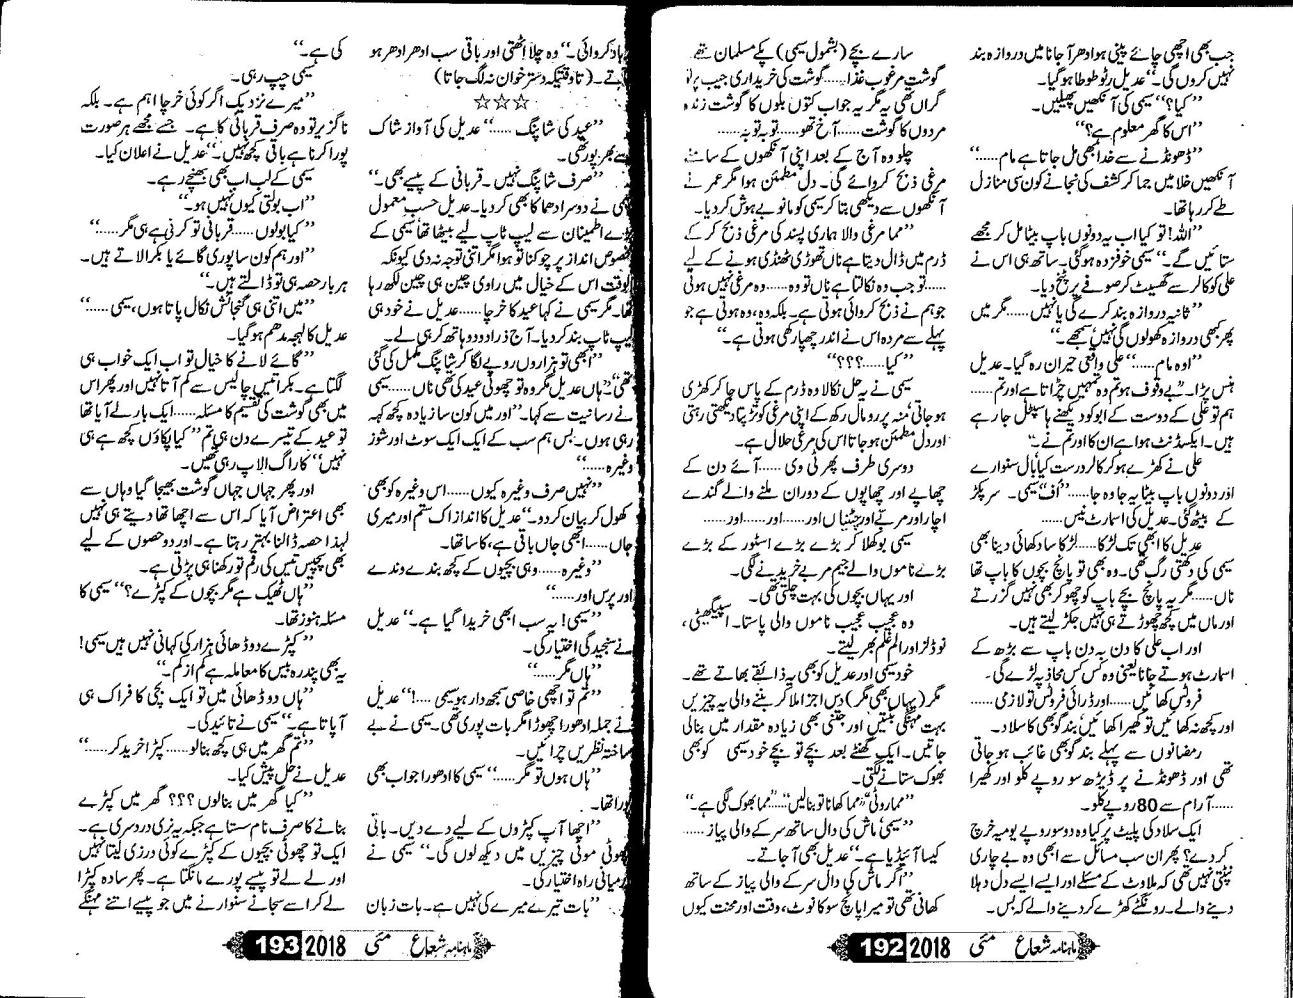 جب بھی اچھی چائے پینی ہو ادھر آجانا میں دروازہ بند
نہیں کروں گی۔“ عدیل رٹو طوطا ہوگیا۔
”کیا؟“ سیمی کی آنکھیں پھیلیں۔
”اس کا گھر معلوم ہے؟“
”ڈھونڈنے سے خدا بھی مل جاتا ہے مام……“
آنکھیں خلا میں جما کر کشف کی نجانے کون سی منازل
طے کر رہا تھا۔
”اللہ! تو کیا اب یہ دونوں باپ بیٹا مل کر مجھے
ستائیں گے۔“ سیمی خوفزدہ ہوگئی۔ ساتھ ہی اس نے
علی کو کالر سے گھسیٹ کر صوفے پر پٹخ دیا۔
”ثانیہ دروازہ بند کرے گی یا نہیں…… مگر میں
پھر کبھی دروازہ کھولوں گی نہیں سمجھے۔“
”اوہ مام……“ علی واقعی حیران رہ گیا۔ عدیل
ہنس پڑا۔ ”بے وقوف ہو تم وہ تمہیں چڑاتا ہے اور تم……
ہم تو علی کے دوست کے ابو کو دیکھنے ہاسپٹل جا رہے
ہیں۔ ایکسڈنٹ ہوا ہے ان کا اور تم نے۔“
علی نے کھڑے ہو کر کالر درست کیا‘ بال سنوارے
اور دونوں باپ بیٹا یہ جا وہ جا……”اُف“ سیمی۔ سر پکڑ
کے بیٹھ گئی۔ عدیل کی اسمارٹ نیس……
عدیل کا ابھی تک لڑکا…… لڑکا سا دکھائی دینا بھی
سیمی کی دکھتی رگ تھی۔ وہ بھی تو پانچ بچوں کا باپ تھا
ناں…… مگر یہ پانچ بچے باپ کو چھو کر بھی نہیں گزرتے
اور ماں میں کچھ چھوڑتے ہی نہیں جکڑ لیتے ہیں۔
اور اب علی کا دن بہ دن باپ سے بڑھ کے
اسمارٹ ہوتے جانا یعنی وہ کس کس محاذ پہ لڑے گی۔
فروٹس کھائیں…… اور ڈرائی فروٹس تو لازمی……
اور کچھ نہ کھائیں تو کھیرا کھائیں‘ بند گوبھی کا سلاد۔
رمضانوں سے پہلے بند گوبھی غائب ہوجاتی
تھی اور ڈھونڈنے پر ڈیڑھ سو روپے کلو اور کھیرا
…… آرام سے 80 روپے کلو۔
ایک سلاد کی پلیٹ پر کیا وہ دو سو روپے یومیہ خرچ
کر دے؟ پھر ان سب مسائل سے ابھی وہ بے چاری
نپٹتی نہیں تھی کہ ملاوٹ کے مسئلے اور ایسے ایسے دل دہلا
دینے والے۔ رونگٹے کھڑے کر دینے والے کہ بس۔
سارے بچے (بشمول سیمی) پکے مسلمان تھے
گوشت مرغوب غذا…… گوشت کی خریداری جیب پر
گراں تھی یہ مگر یہ جواب کتوں بلوں کا گوشت زندہ
مردوں کا گوشت…… آخ تھو…… توبہ توبہ……
چلو وہ آج کے بعد اپنی آنکھوں کے سامنے
مرغی ذبح کروائے گی۔ دل مطمئن ہوا مگر عمر نے
آنکھوں سے دیکھی بتا کر سیمی کو مانو بے ہوش کر دیا۔
”مما مرغی والا ہماری پسند کی مرغی ذبح کر کے
ڈرم میں ڈال دیتا ہے ناں تھوڑی ٹھنڈی ہونے کے لیے
…… تو جب وہ نکالتا ہے ناں تو وہ…… وہ مرغی نہیں ہوتی
جو ہم نے ذبح کروائی ہوتی ہے۔ بلکہ وہ، وہ ہوتی ہے جو
پہلے سے مردہ اس نے اندر چھپا رکھی ہوتی ہے۔“
”کیا……؟؟؟“
سیمی نے یہ حل نکالا وہ ڈرم کے پاس جا کر کھڑی
ہو جاتی منہ پر رومال رکھ کے اپنی مرغی کو تڑپتا دیکھتی رہتی
اور دل مطمئن ہو جاتا اس کی مرغی حلال ہے۔
دوسری طرف پھر ٹی وی…… آئے دن کے
چھاپے اور چھاپوں کے دوران ملنے والے گندے
اچار اور مربے اور چٹنیاں اور…… اور…… اور……
سیمی بوکھلا کر بڑے بڑے اسٹور کے بڑے
بڑے ناموں والے جیم مربے خریدنے لگی۔
اور یہاں بچوں کی بہت چلتی تھی۔
وہ عجیب عجیب ناموں والی پاستا۔ اسپیگھیٹی،
نوڈلز اور الم غلم بھر لیتے۔
خود سیمی اور عدیل کو بھی یہ ذائقے بھاتے تھے۔
مگر (یہاں بھی مگر) دس اجزا ملا کر بننے والی یہ چیزیں
بہت مہنگی بنتیں اور جتنی بھی زیادہ مقدار میں بنالی
جاتیں۔ ایک گھنٹے بعد بچے تو بچے خود سیمی کو بھی
بھوک ستانے لگتی۔
”مما روٹی“ ”مما کھانا تو بنالیں“…… ”مما بھوک لگی ہے۔“
”سیمی‘ ماش کی دال ساتھ سرکے والی پیاز……
کیسا آئیڈیا ہے۔“ عدیل بھی آجاتے۔
”اگر ماش کی دال سرکے والی پیاز کے ساتھ
کھانی تھی تو میرا پانچ سو کا نوٹ، وقت اور محنت کیوں
ماہنامہ شعاع مئی 2018 192
برباد کروائی۔“ وہ چلا اٹھتی اور باقی سب ادھر ادھر ہو
جاتے۔ (تاوقتیکہ دسترخوان نہ لگ جاتا)
☆☆☆
”عید کی شاپنگ……“ عدیل کی آواز شاک
سے بھر پور تھی۔
”صرف شاپنگ نہیں۔ قربانی کے پیسے بھی۔“
سیمی نے دوسرا دھماکا بھی کر دیا۔ عدیل حسب معمول
بڑے اطمینان سے لیپ ٹاپ لیے بیٹھا تھا‘ سیمی کے
مخصوص انداز پر چونکا تو ہوا مگر اتنی توجہ نہ دی کیونکہ
فی الوقت اس کے خیال میں راوی چین ہی چین لکھ رہا
تھا۔ مگر سیمی نے کہا عید کا خرچا…… عدیل نے خود ہی
لیپ ٹاپ بند کر دیا۔ آج ذرا دو دو ہاتھ کر ہی لے۔
”ابھی تو ہزاروں روپے لگا کر شاپنگ مکمل کی گئی
تھی؟“ ”ہاں عدیل مگر وہ تو چھوٹی عید کی تھی ناں……سیمی
نے رسانیت سے کہا۔ ”اور میں کون سا زیادہ کچھ کہہ
رہی ہوں۔ بس ہم سب کے ایک ایک سوٹ اور شوز
وغیرہ……“
”نہیں صرف وغیرہ کیوں…… اس وغیرہ کو بھی
کھول کر بیان کر دو۔“ عدیل کا انداز اک ستم اور میری
جاں…… ابھی جاں باقی ہے، کا سا تھا۔
”وغیرہ…… وہی بچیوں کے کچھ بندے وندے
اور پرس اور……“
”سیمی! یہ سب ابھی خریدا گیا ہے۔“ عدیل
نے سنجیدگی اختیار کی۔
”ہاں مگر……“
”تم تو اچھی خاصی سمجھ دار ہو سیمی……!“ عدیل
نے جملہ ادھورا چھوڑا مگر بات پوری تھی۔ سیمی نے بے
ساختہ نظریں چرائیں۔
”ہاں ہوں تو مگر……“ سیمی کا ادھورا جواب بھی
پورا تھا۔
”اچھا آپ کپڑوں کے لیے دے دیں۔ باقی
چھوٹی موٹی چیزیں میں دیکھ لوں گی۔“ سیمی نے
درمیانی راہ اختیار کی۔
”بات تیرے میرے کی نہیں ہے۔ بات زبان
کی ہے۔“
سیمی چپ رہی۔
”میرے نزدیک اگر کوئی خرچا اہم ہے۔ بلکہ
ناگزیر تو وہ صرف قربانی کا ہے۔ جسے مجھے ہر صورت
پورا کرنا ہے باقی کچھ نہیں۔“ عدیل نے اعلان کیا۔
سیمی کے لب اب بھی بھنچے رہے۔
”اب بولتی کیوں نہیں ہو۔“
”کیا بولوں…… قربانی تو کرنی ہے ہی مگر……“
”اور ہم کون سا پوری گائے یا بکرا لاتے ہیں۔
ہر بار حصہ ہی تو ڈالتے ہیں۔“
”میں اتنی ہی گنجائش نکال پاتا ہوں، سیمی……“
عدیل کا لہجہ مدھم ہوگیا۔
”گائے لانے کا خیال تو اب ایک خواب ہی
لگتا ہے۔ بکرا تیس چالیس سے کم آتا نہیں اور پھر اس
میں بھی گوشت کی تقسیم کا مسئلہ…… ایک بار لے آیا تھا
تو عید کے تیسرے دن ہی تم ”کیا پکاؤں کچھ ہے ہی
نہیں“ کا راگ الاپ رہی تھیں۔
اور پھر جہاں جہاں گوشت بھیجا گیا وہاں سے
بھی اعتراض آیا کہ اس سے اچھا تھا دیتے ہی نہیں
لہٰذا حصہ ڈالنا بہتر رہتا ہے۔ اور دو حصوں کے لیے
بھی پچیس تیس کی رقم تو رکھنا ہی پڑتی ہے۔
”ہاں ٹھیک ہے مگر بچوں کے کپڑے؟“ سیمی کا
مسئلہ ہنوز تھا۔
”کپڑے دو ڈھائی ہزار کی کہانی نہیں ہیں سیمی!
یہ بھی پندرہ بیس کا معاملہ ہے کم از کم۔“
”ہاں دو ڈھائی میں تو ایک بچی کا فراک ہی
آپاتا ہے۔“ سیمی نے تائید کی۔
”تم گھر میں ہی کچھ بنالو…… کپڑا خرید کر……“
عدیل نے حل پیش کیا۔
”کیا گھر میں بنالوں؟؟؟ گھر میں کپڑے
بنانے کا صرف نام سستا ہے جبکہ یہ نری دردسری ہے۔
ایک تو چھوٹی بچیوں کے کپڑے کوئی درزی لیتا نہیں
اور لے لے تو پیسے پورے مانگتا ہے۔ پھر سادہ کپڑا
لے کر اسے سجانے سنوارنے میں جو پیسے اتنے مہنگے
ماہنامہ شعاع مئی 2018 193